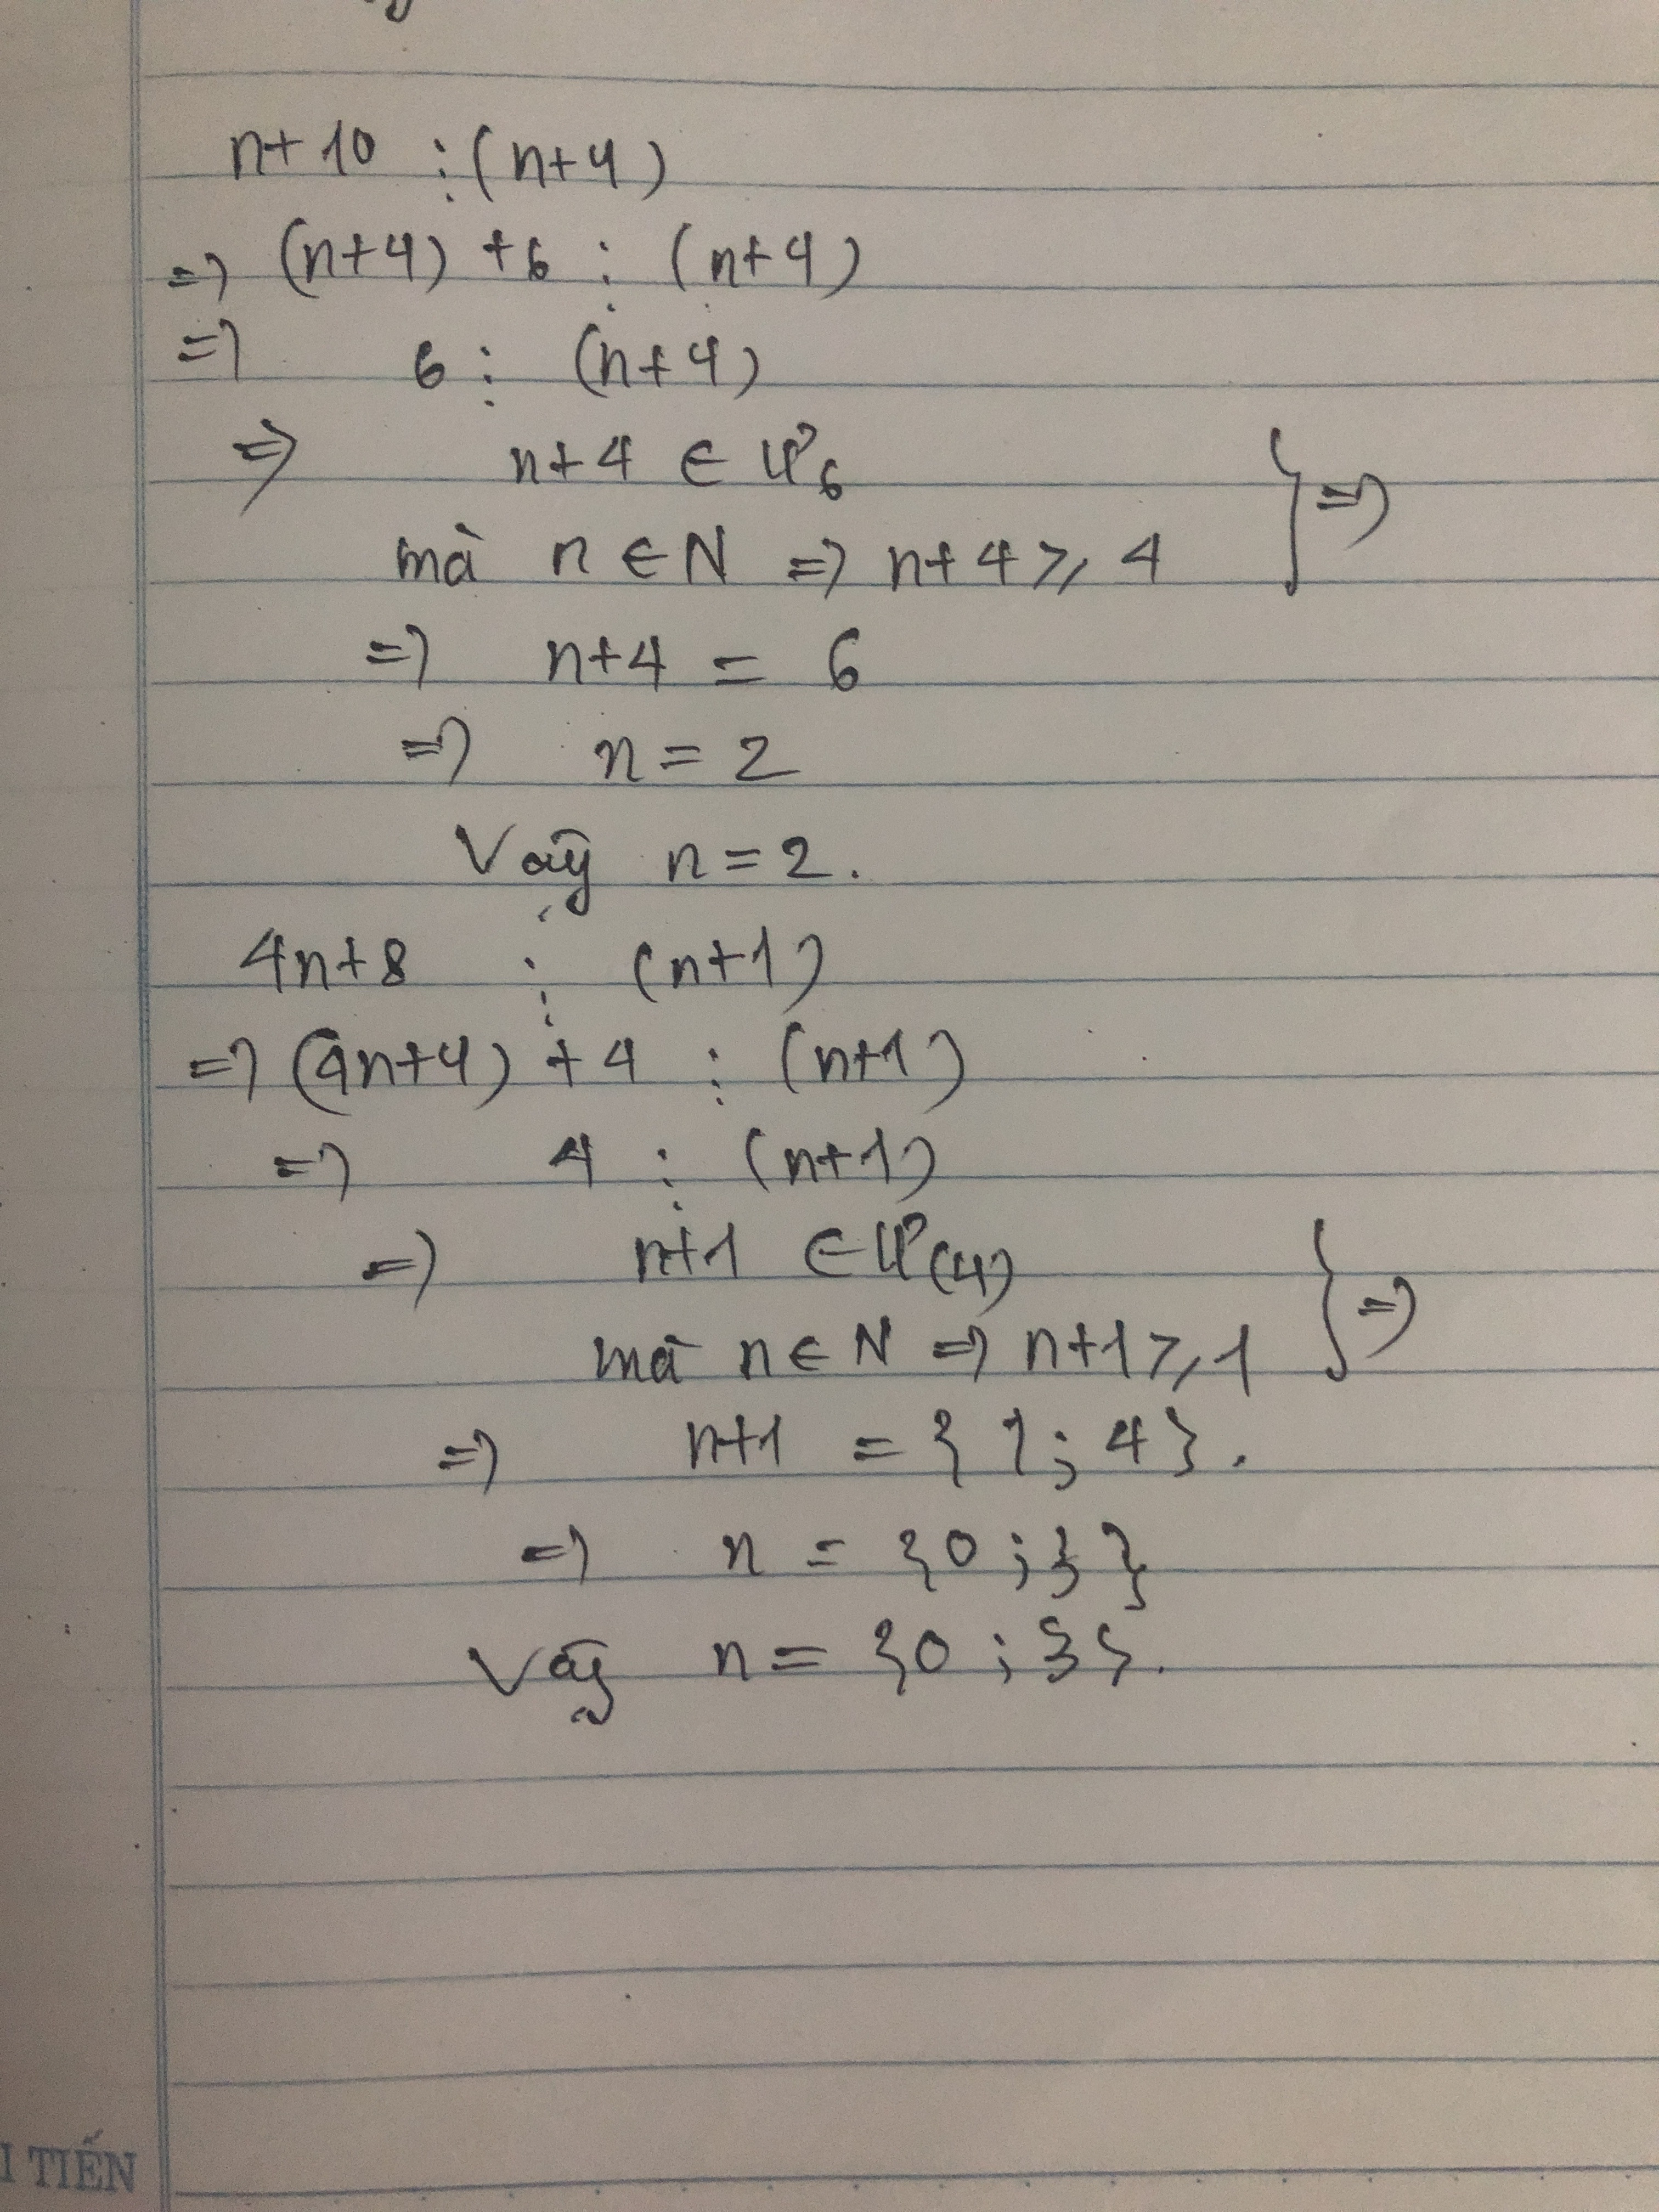 n+10 ⋮ (n+4)
=> (n+4) +6 ⋮ (n+4)
=> 6 ⋮ (n+4)
=> n+4 ∈ Ư6
mà n ∈ N => n+4 ⩾ 4 } =>
=> n+4 = 6
=> n = 2
Vậy n = 2.
4n+8 ⋮ (n+1)
=> (4n+4) + 4 ⋮ (n+1)
=> 4 ⋮ (n+1)
=> n+1 ∈ Ư(4)
mà n ∈ N => n+1 ⩾ 1 } =>
=> n+1 = { 1 ; 4 }.
=> n = {0 ; 3}
Vậy n = {0 ; 3}.
I TIẾN